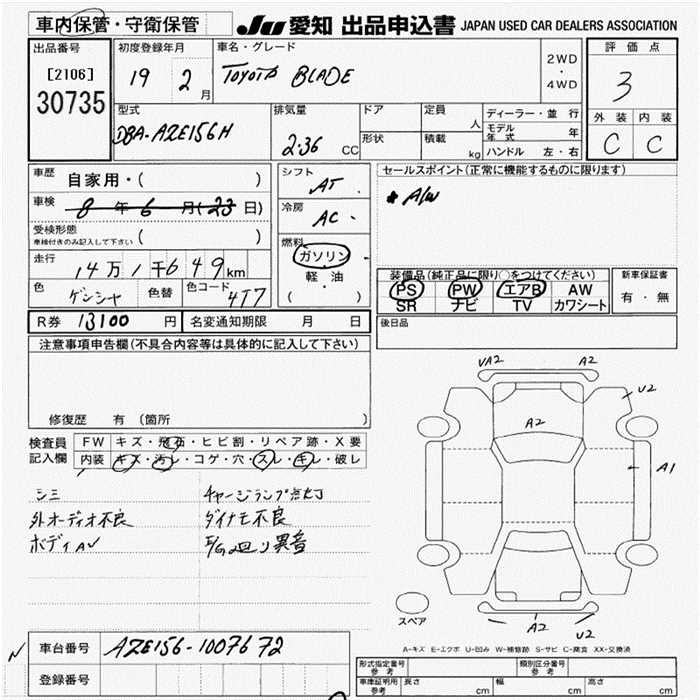 車内保管・守衛保管
JU 愛知 出品申込書 JAPAN USED CAR DEALERS ASSOCIATION
出品番号
[2106]
30735
初度登録年月
19 2月
車名・グレード
TOYOTA BLADE
2WD
・
4WD
評価点
3
外装 内装
C C
型式
DBA-AZE156H
排気量
2.36 CC
ドア
形状
定員
人
積載
kg
ディーラー・並行
モデル年式 年
ハンドル 左・右
車歴 自家用・( )
車検 8年6月(23日)
受検形態
車検付きのみ記入して下さい ( )
走行 14万1千649km
色 ゲンシャ 色替 色コード 4T7
シフト AT.
冷房 AC.
燃料
ガソリン
軽・油
( )
セールスポイント(正常に機能するものに限ります)
* A/W
装備品(純正品に限り○をつけてください)
PS PW エアB AW
SR ナビ TV カワシート
新車保証書
有・無
R券 13100 円 名変通知期限 月 日
後日品
注意事項申告欄(不具合内容等は具体的に記入して下さい)
修復歴 有 (箇所 )
検査員記入欄
FW キズ・飛石・ヒビ割・リペア跡・X要
内装 キズ・汚レ・コゲ・穴・スレ・キレ・破レ
シミ
外オーディオ不良
ボディAV
チャージランプ点灯
ダイナモ不良
E/G廻り異音
VA2 A2
U2
A2
A1
A2
U2
スペア
A-キズ E-エクボ U-凹み W-補修跡 S-サビ C-腐食 XX-交換済
N
車台番号 AZE156-1007672
登録番号
形式指定番号 参考
類別区分番号 参考
車庫証明用 参考 長さ cm 幅 cm 高さ cm